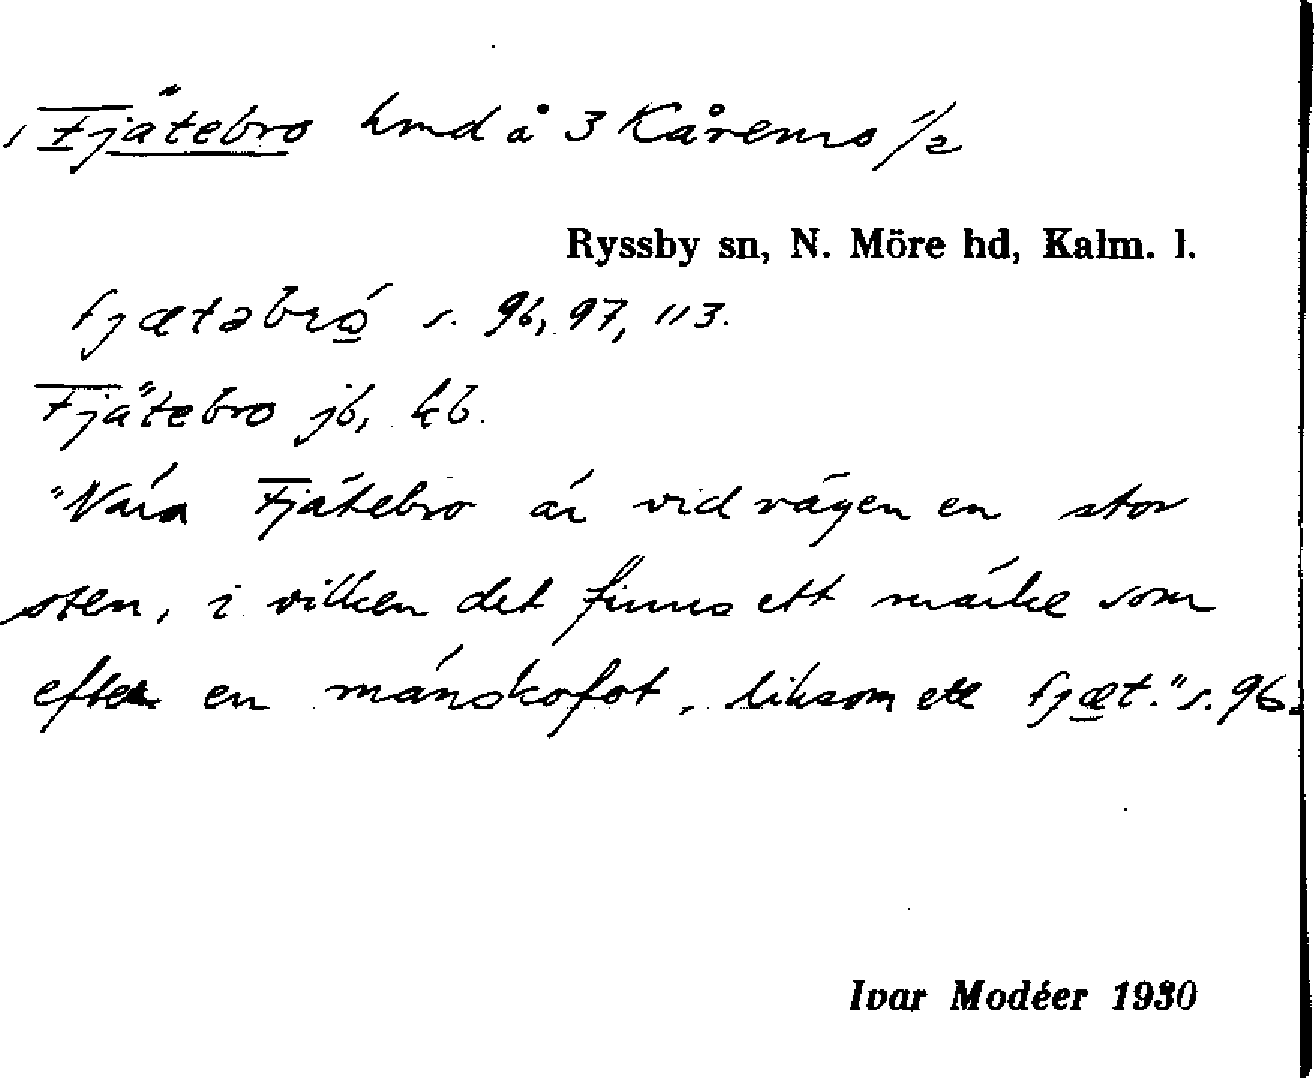 Fjätebro hmd å 3 Kårenus 1/2
Ryssby sn, N. Möre hd, Kalm. l.
fjætəbro̲ s. 96, 97, 113.
Fjätebro jb, kb.
"Nära Fjätebro är vid vägen en stor
sten, i vilken det finns ett märke som
efter en mänskofot, liksom ett fjæt." s. 96.
Ivar Modéer 1930